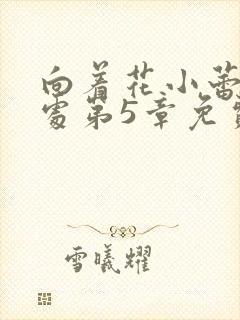 向着花小蕾
处第5章免
雪曦耀